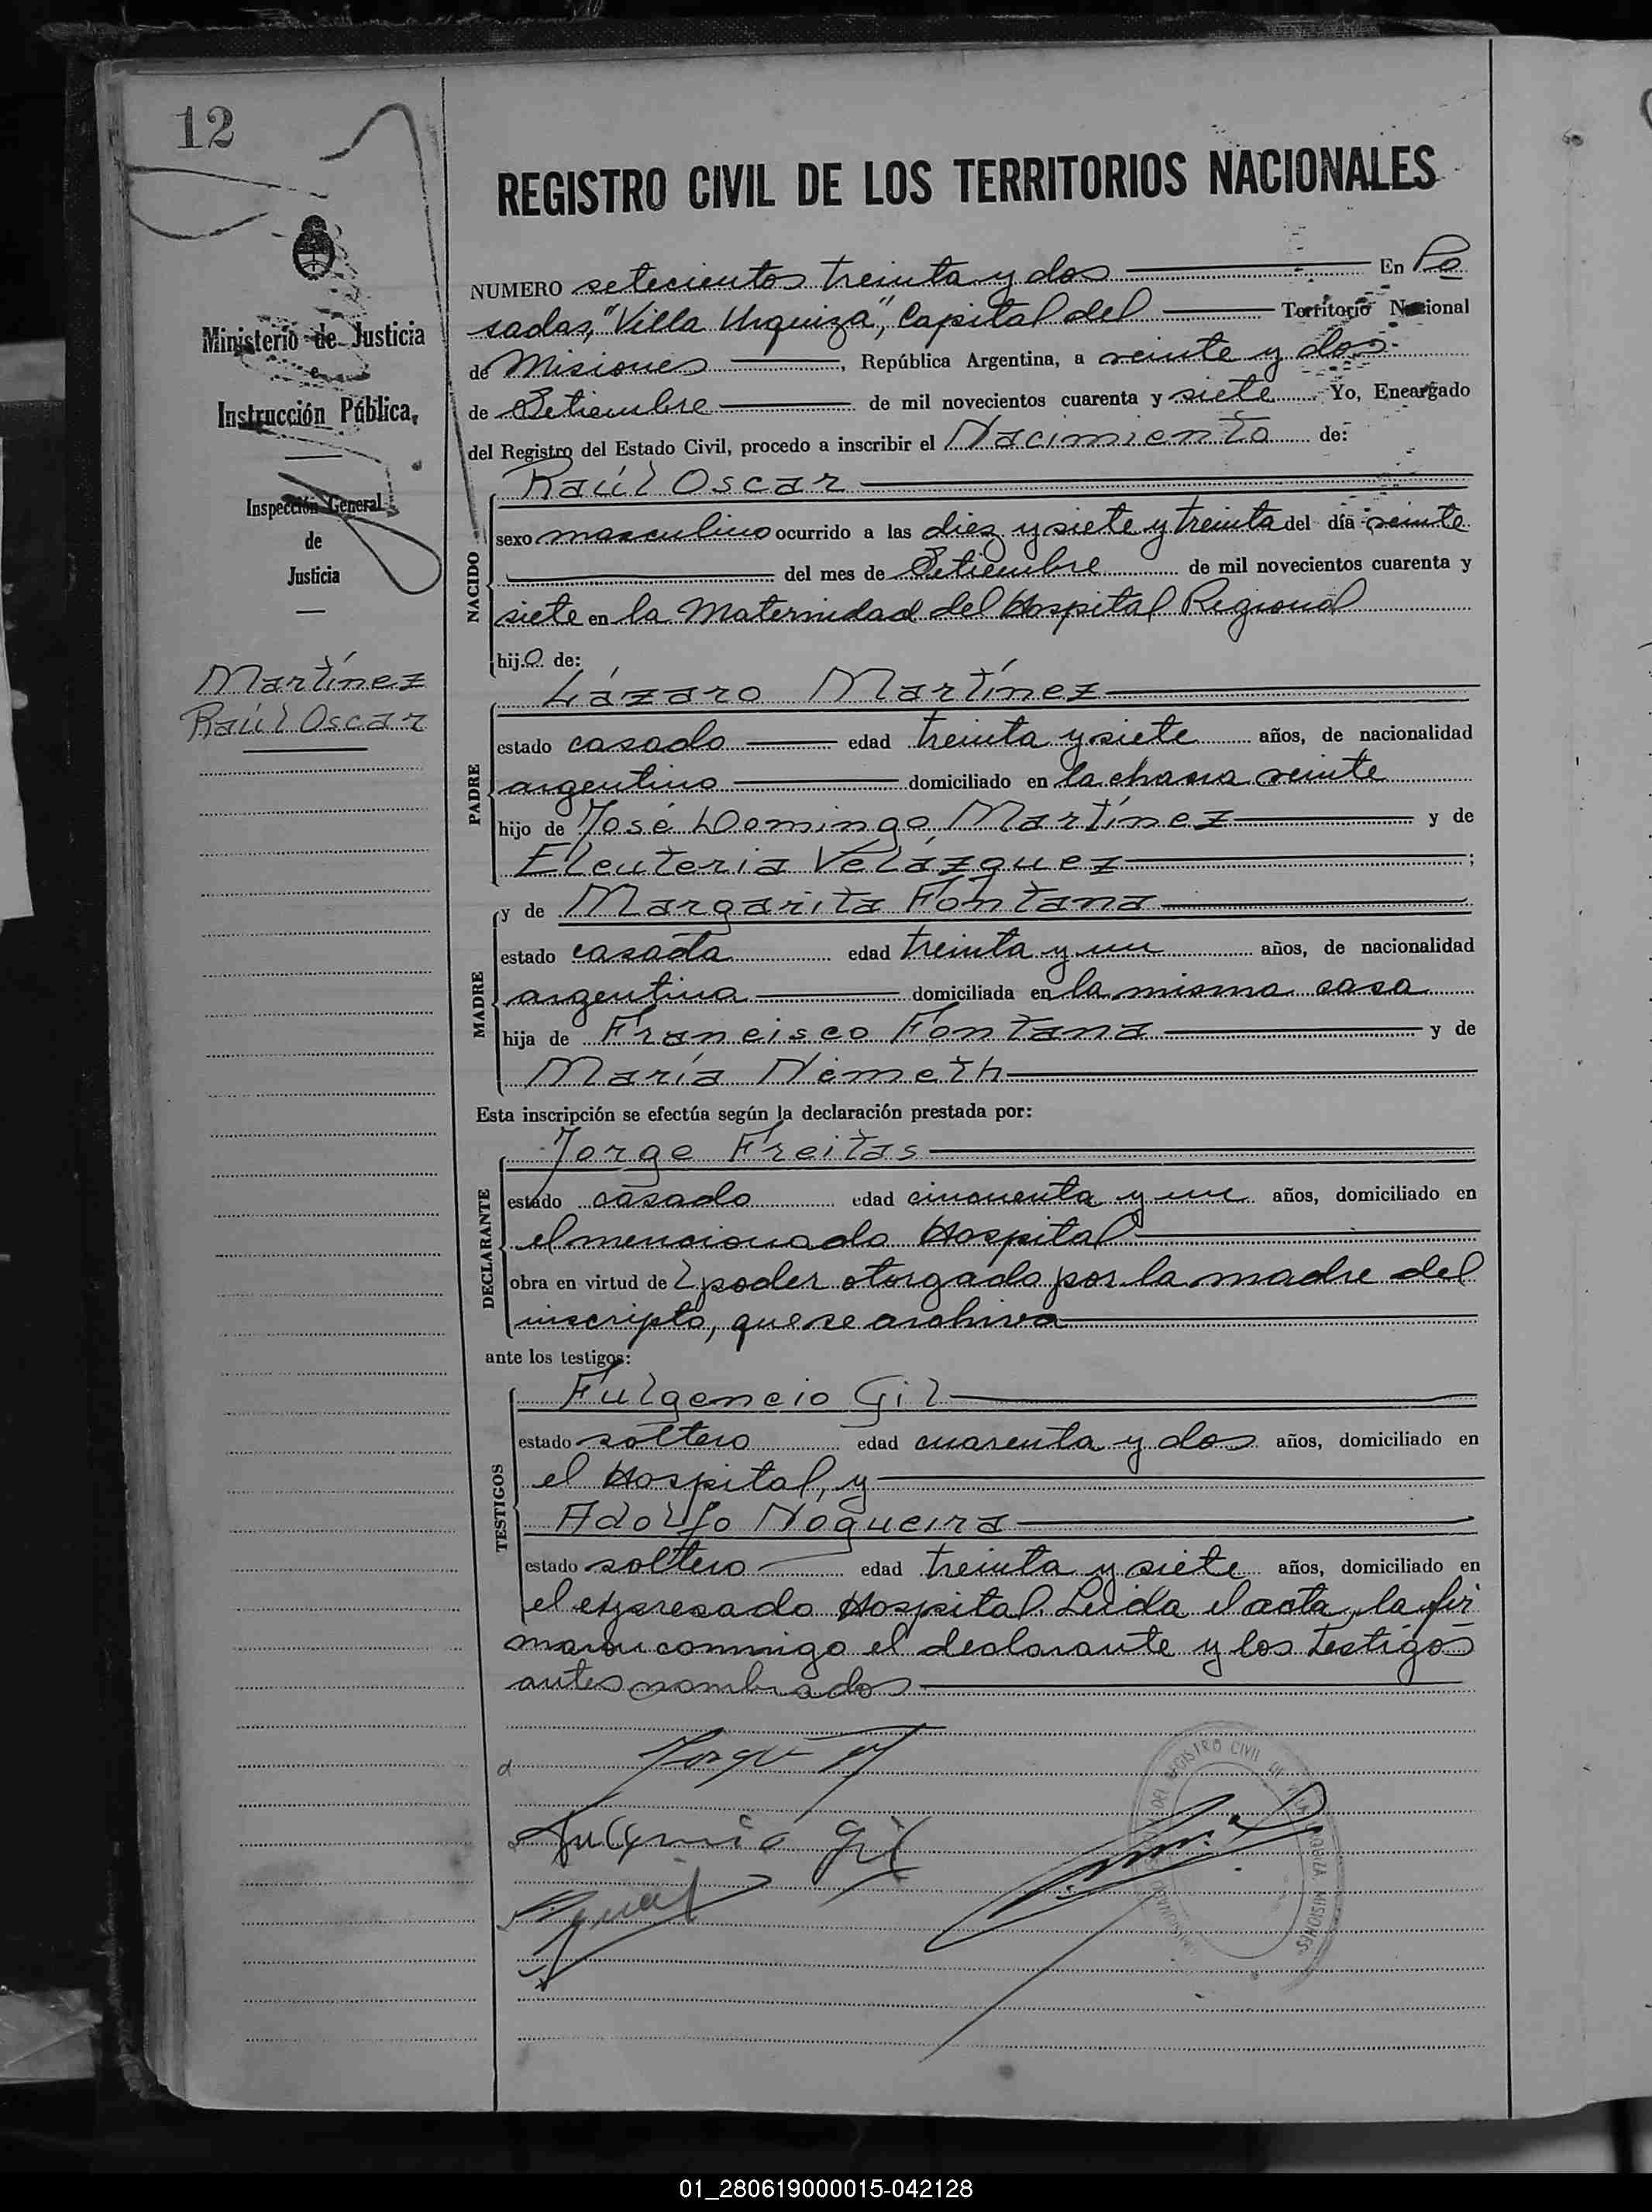 12
REGISTRO CIVIL DE LOS TERRITORIOS NACIONALES
Ministerio de Justicia
e
Instrucción Pública,
Inspección General
de
Justicia
Martínez
Raúl Oscar
NUMERO setecientos treinta y dos En Po
sadas, "Villa Urquiza", Capital del Territorio Nacional
de Misiones, República Argentina, a veinte y dos
de Setiembre de mil novecientos cuarenta y siete Yo, Encargado
del Registro del Estado Civil, procedo a inscribir el Nacimiento de:
NACIDO
Raúl Oscar
sexo masculino ocurrido a las diez y siete y treinta del día veinte
del mes de Setiembre de mil novecientos cuarenta y
siete en la Maternidad del Hospital Regional
hijo de:
PADRE
Lázaro Martínez
estado casado edad treinta y siete años, de nacionalidad
argentino domiciliado en la chacra veinte
hijo de José Domingo Martínez y de
Eleuteria Velázquez;
MADRE
y de Margarita Fontana
estado casada edad treinta y un años, de nacionalidad
argentina domiciliada en la misma casa
hija de Francisco Fontana y de
María Németh
Esta inscripción se efectúa según la declaración prestada por:
DECLARANTE
Jorge Freitas
estado casado edad cincuenta y un años, domiciliado en
el mencionado Hospital
obra en virtud de l poder otorgado por la madre del
inscripto, que se archiva
ante los testigos:
TESTIGOS
Fulgencio Gil
estado soltero edad cuarenta y dos años, domiciliado en
el Hospital, y
Adolfo Nogueira
estado soltero edad treinta y siete años, domiciliado en
el expresado Hospital. Leída el acta, la fir
maron conmigo el declarante y los testigos
antes nombrados
Jorge
Fulgencio Gil
REGISTRO CIVIL DE MISIONES
01_280619000015-042128